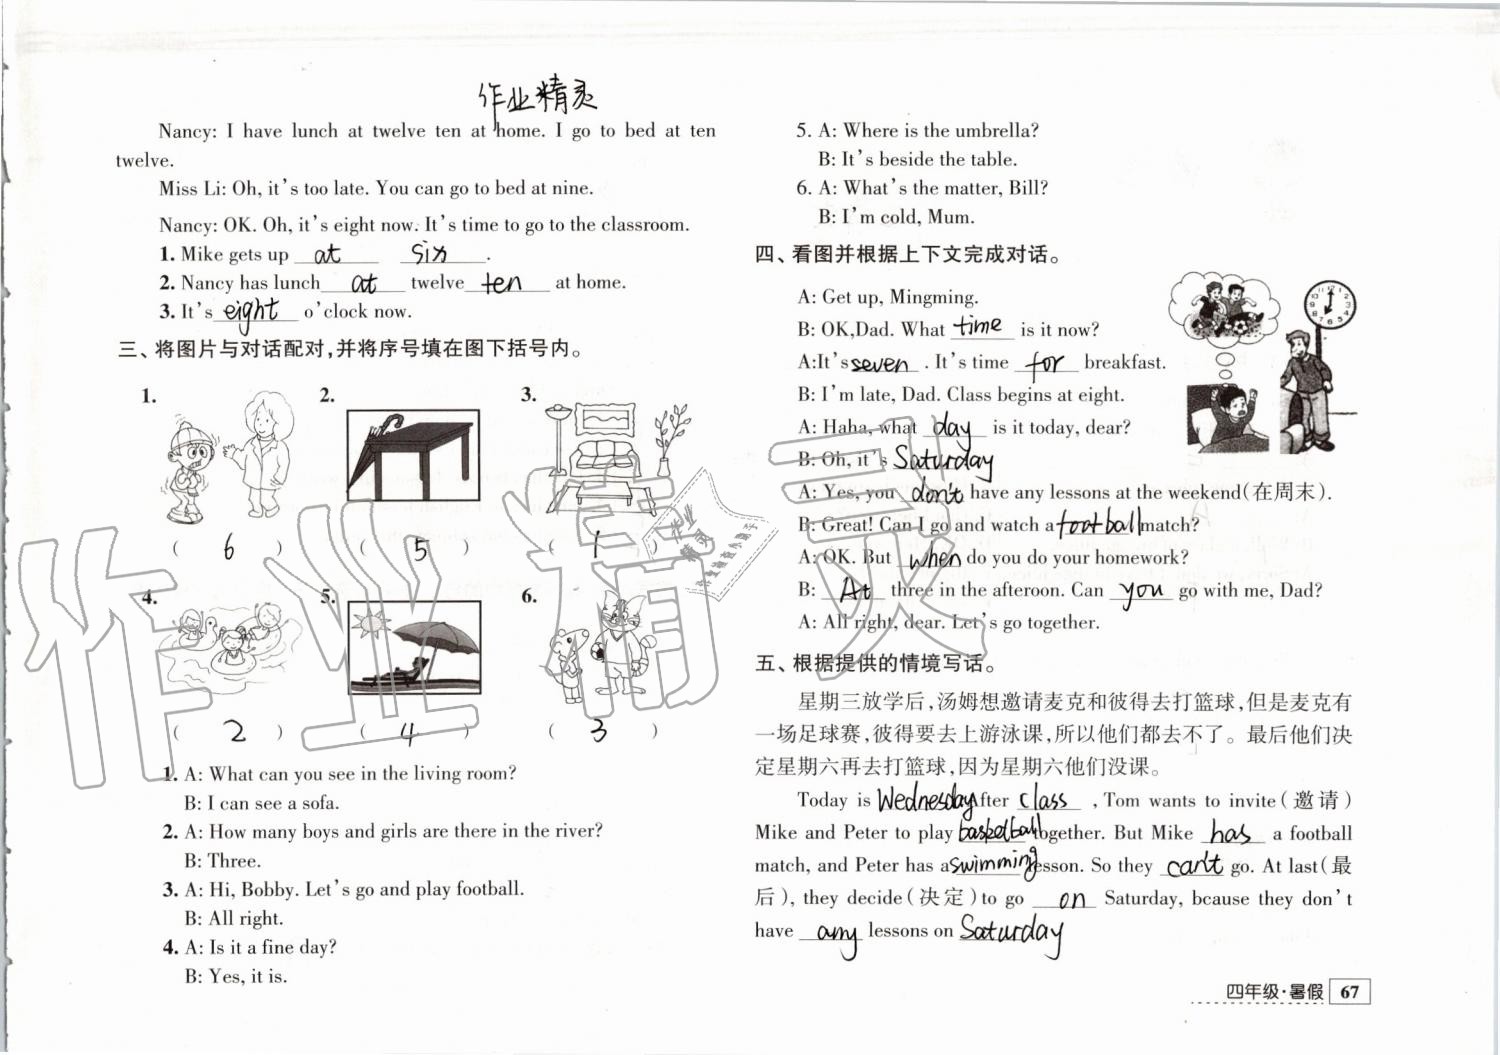 作业精灵
Nancy: I have lunch at twelve ten at home. I go to bed at ten
twelve.
Miss Li: Oh, it's too late. You can go to bed at nine.
Nancy: OK. Oh, it's eight now. It's time to go to the classroom.
1. Mike gets up at six.
2. Nancy has lunch at twelve ten at home.
3. It's eight o'clock now.
三、将图片与对话配对,并将序号填在图下括号内。
1. 2. 3.
( 6 ) ( 5 ) ( 1 )
4. 5. 6.
( 2 ) ( 4 ) ( 3 )
1. A: What can you see in the living room?
B: I can see a sofa.
2. A: How many boys and girls are there in the river?
B: Three.
3. A: Hi, Bobby. Let's go and play football.
B: All right.
4. A: Is it a fine day?
B: Yes, it is.
5. A: Where is the umbrella?
B: It's beside the table.
6. A: What's the matter, Bill?
B: I'm cold, Mum.
四、看图并根据上下文完成对话。
A: Get up, Mingming.
B: OK,Dad. What time is it now?
A:It's seven. It's time for breakfast.
B: I'm late, Dad. Class begins at eight.
A: Haha, what day is it today, dear?
B: Oh, it's Saturday
A: Yes, you don't have any lessons at the weekend(在周末).
B: Great! Can I go and watch a football match?
A: OK. But when do you do your homework?
B: At three in the afteroon. Can you go with me, Dad?
A: All right, dear. Let's go together.
五、根据提供的情境写话。
星期三放学后,汤姆想邀请麦克和彼得去打篮球,但是麦克有
一场足球赛,彼得要去上游泳课,所以他们都去不了。最后他们决
定星期六再去打篮球,因为星期六他们没课。
Today is Wednesday After class, Tom wants to invite(邀请)
Mike and Peter to play basketball together. But Mike has a football
match, and Peter has a swimming lesson. So they can't go. At last(最
后), they decide(决定)to go on Saturday, bcause they don't
have any lessons on Saturday
四年级·暑假 67
作业精灵